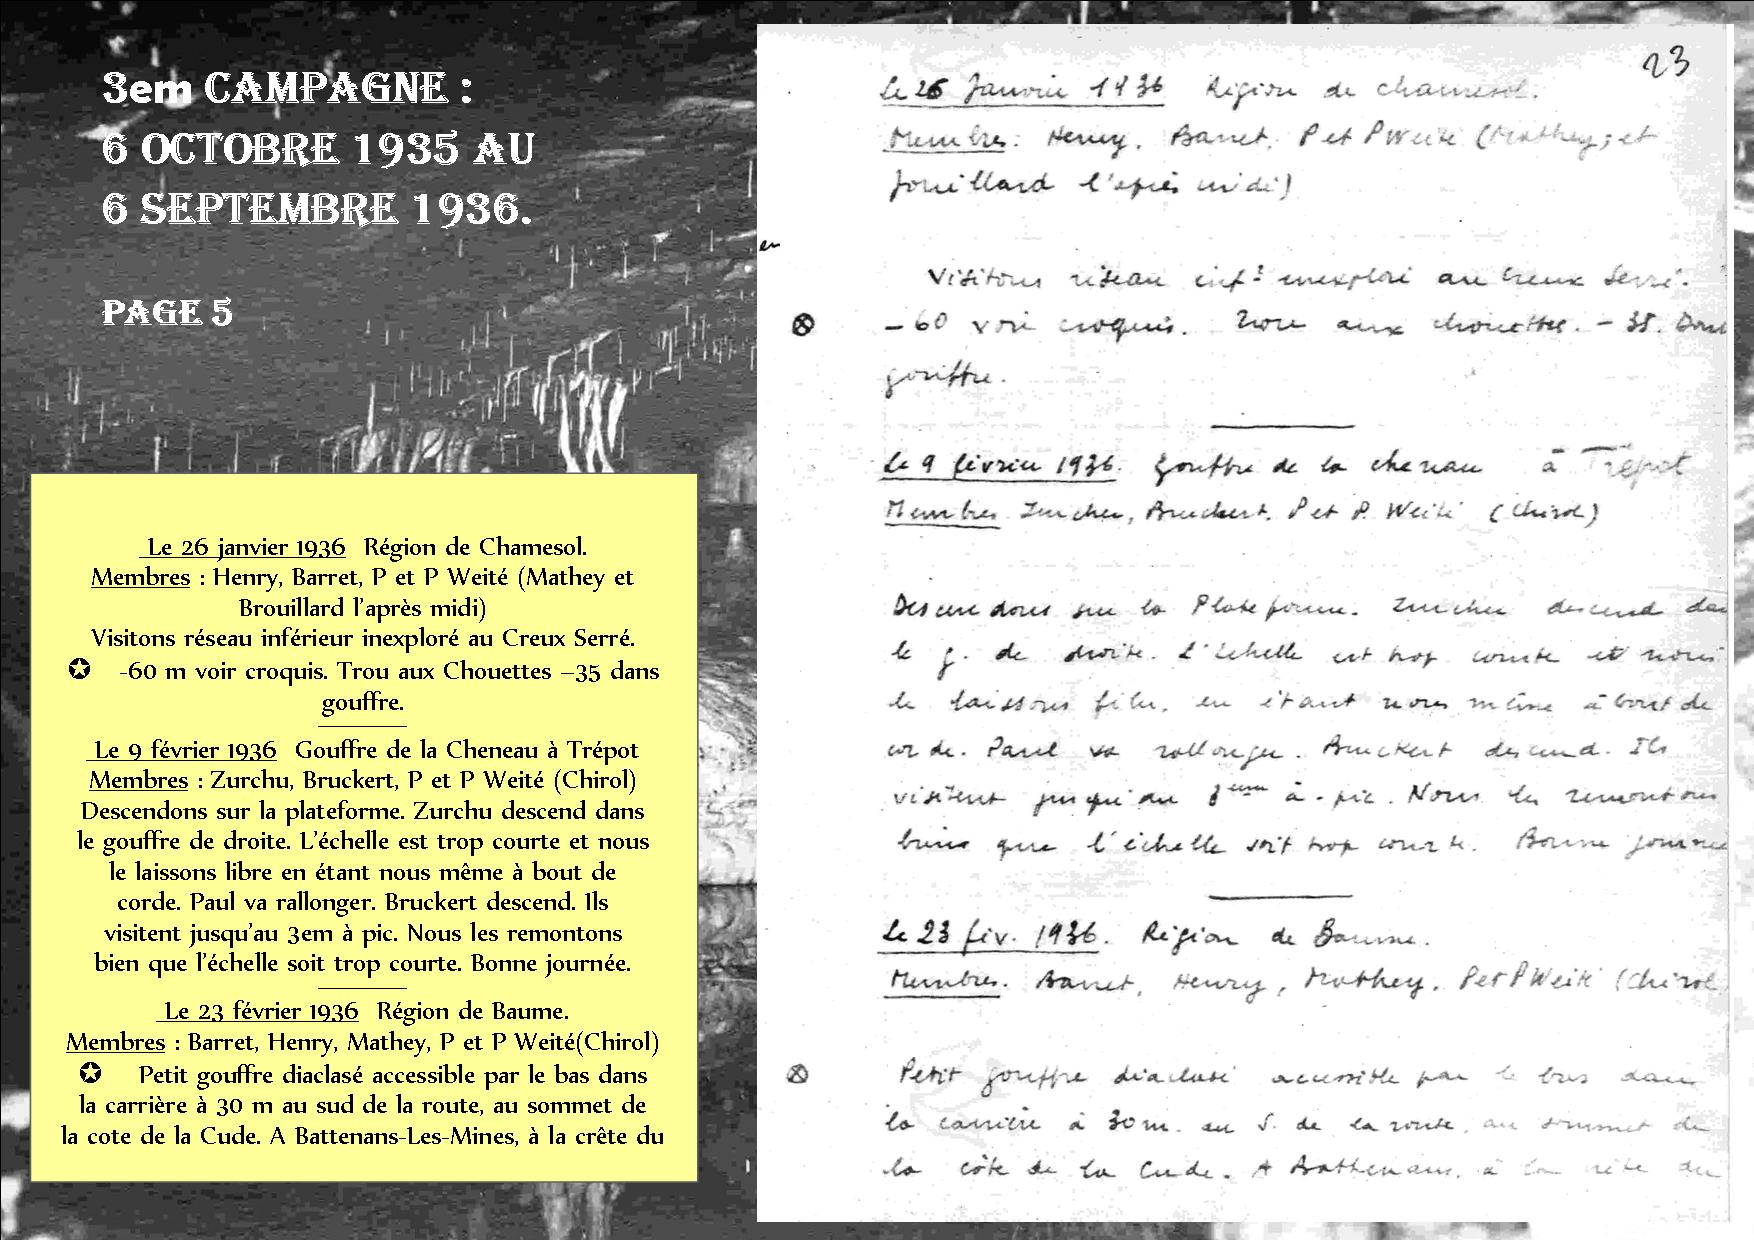 3em CAMPAGNE :
6 OCTOBRE 1935 AU
6 SEPTEMBRE 1936.
PAGE 5
Le 26 janvier 1936 Région de Chamesol.
Membres : Henry, Barret, P et P Weité (Mathey et
Brouillard l’après midi)
Visitons réseau inférieur inexploré au Creux Serré.
✪ -60 m voir croquis. Trou aux Chouettes –35 dans
gouffre.
Le 9 février 1936 Gouffre de la Cheneau à Trépot
Membres : Zurchu, Bruckert, P et P Weité (Chirol)
Descendons sur la plateforme. Zurchu descend dans
le gouffre de droite. L’échelle est trop courte et nous
le laissons libre en étant nous même à bout de
corde. Paul va rallonger. Bruckert descend. Ils
visitent jusqu’au 3em à pic. Nous les remontons
bien que l’échelle soit trop courte. Bonne journée.
Le 23 février 1936 Région de Baume.
Membres : Barret, Henry, Mathey, P et P Weité(Chirol)
✪ Petit gouffre diaclasé accessible par le bas dans
la carrière à 30 m au sud de la route, au sommet de
la cote de la Cude. A Battenans-Les-Mines, à la crête du
23
Le 26 Janvier 1936 Région de chamesol.
Membres : Henry, Barret, P et P Weité (Mathey ; et
l'après midi)
en
Visitons réseau infr inexploré au Creux Serré.
⊗ - 60 voir croquis. Trou aux chouettes. - 35. Dans
gouffre.
le 9 février 1936. Gouffre de la chenau à Trépot
Membres Zurcher, Bruckert, P et P. Weité (Chirol)
Descendons sur la Plateforme. Zurcher descend dan
le g. de droite. L'échelle est trop courte et nous
le laissons filer, en étant nous même à bout de
corde. Paul va rallonger. Bruckert descend. Ils
visitent jusqu'au 3eme à-pic. Nous les remontons
bien que l'échelle soit trop courte. Bonne journée
Le 23 fév. 1936. Région de Baume.
Membres. Barret, Henry, Mathey, P et P Weité (Chirol
⊗ Petit gouffre diaclasé accessible par le bas dans
la carrière à 30 m. au S. de la route, au sommet de
la côte de la Cude. A Battenans, à la crête du